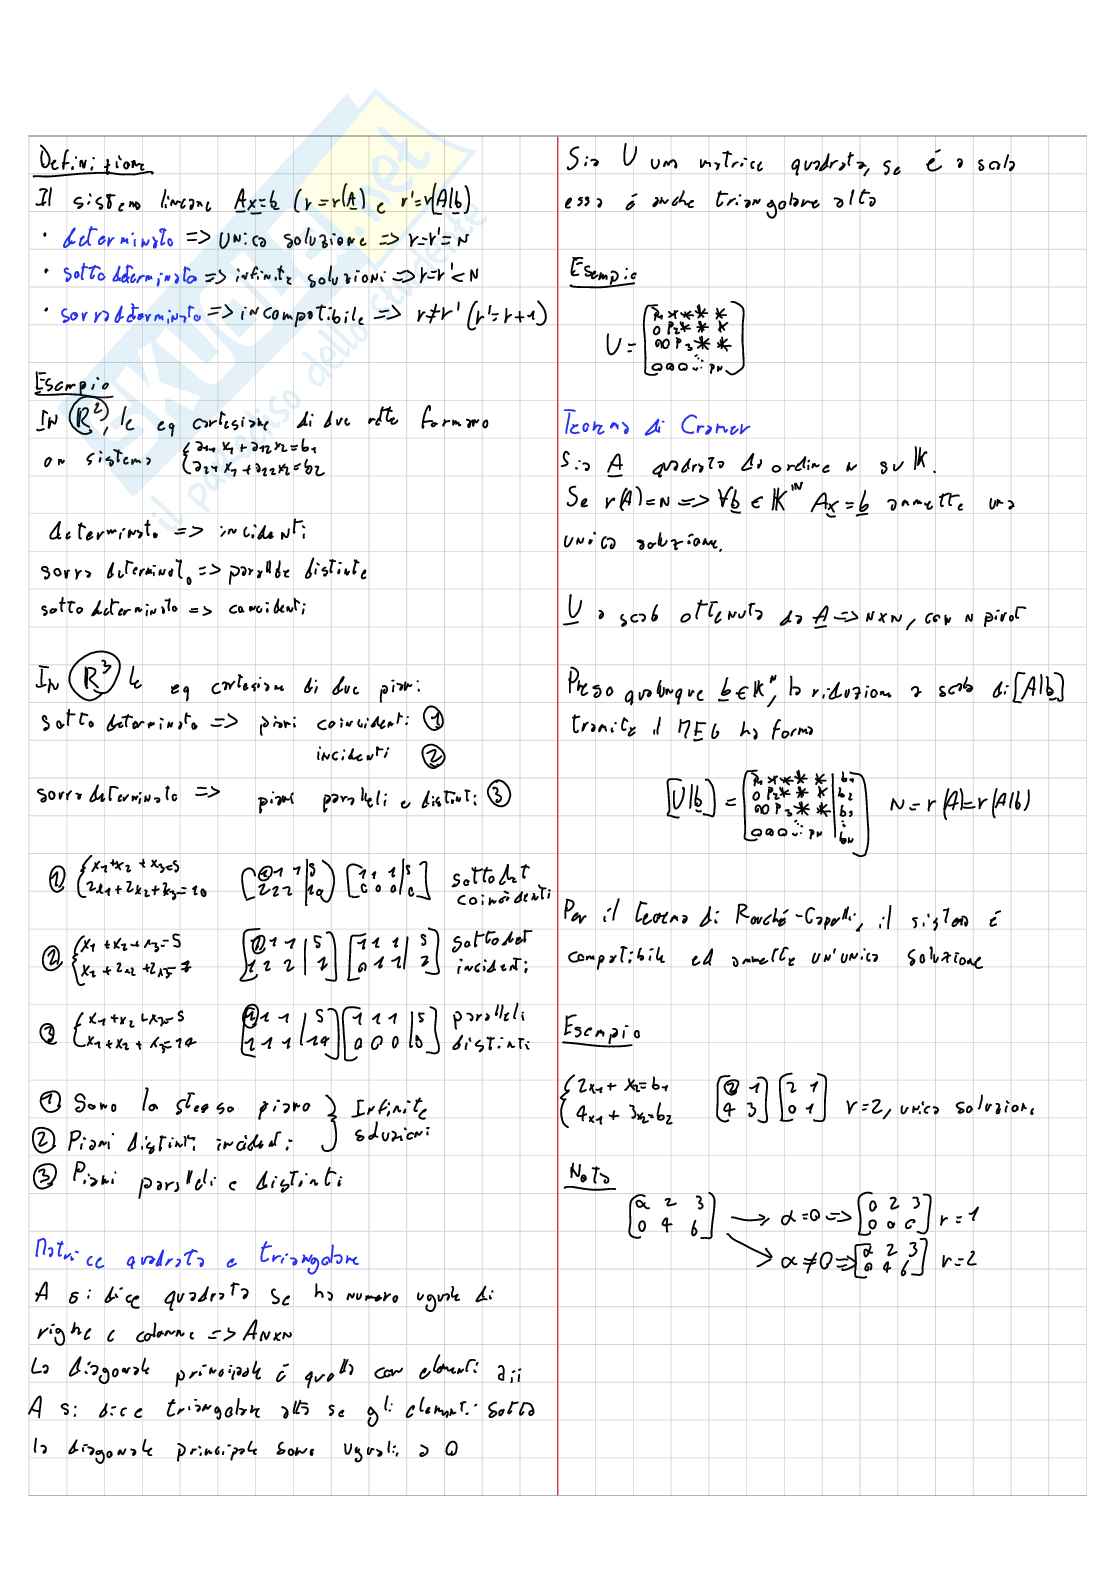 Definizione
Il sistema lineare Ax=b (r=r(A) e r'=r(A|b)
• determinato => unica soluzione => r=r'=N
• sottodeterminato => infinite soluzioni => r=r'<N
• sovradeterminato => incompatibile => r≠r' (r'=r+1)
Esempio
IN R², le eq cartesiane di due rette formano
un sistema { a11 x1 + a12 x2 = b1
a21 x1 + a22 x2 = b2
determinato => incidenti
sovradeterminato => parallele distinte
sottodeterminato => coincidenti
IN R³ le eq cartesiane di due piani:
sottodeterminato => piani coincidenti ①
incidenti ②
sovradeterminato => piani paralleli e distinti ③
① { x1+x2+x3=5 [1 1 1|5] [1 1 1|5] sottodet
2x1+2x2+2x3=10 [2 2 2|10] [0 0 0|0] coincidenti
② { x1+x2+x3=5 [1 1 1|5] [1 1 1|5] sottodet
x1+2x2+2x3=7 [1 2 2|7] [0 1 1|2] incidenti
③ { x1+x2+x3=5 [1 1 1|5] [1 1 1|5] paralleli
x1+x2+x3=14 [1 1 1|14] [0 0 0|] distinti
① Sono lo stesso piano } Infinite
② Piani distinti incidenti } soluzioni
③ Piani paralleli e distinti
Matrice quadrata e triangolare
A si dice quadrata se ha numero uguale di
righe e colonne => ANxN
La diagonale principale é quella con elementi aii
A si dice triangolare alta se gli elementi sotto
la diagonale principale sono uguali a 0
Sia U una matrice quadrata, se é a scala
essa é anche triangolare alta
Esempio
U = [p1 * * * *
0 p2 * * *
0 0 p3 * *
0 0 0 ... pN]
Teorema di Cramer
Sia A quadrata di ordine N su K.
Se r(A)=N => ∀b ∈ K^N Ax=b ammette una
unica soluzione.
U a scala ottenuta da A => NxN, con N pivot
Preso qualunque b∈K^N, la riduzione a scala di [A|b]
tramite il MEG ha forma
[U|b] = [p1 * * * * | b1
0 p2 * * * | b2
0 0 p3 * * | b3
0 0 0 ... pN | bN] N=r(A)=r(A|b)
Per il teorema di Rouché-Capelli, il sistema é
compatibile ed ammette un'unica soluzione
Esempio
{ 2x1+x2=b1 [2 1] [2 1]
4x1+3x2=b2 [4 3] [0 1] r=2, unica soluzione
Nota
[α 2 3] → α=0 => [0 2 3] r=1
[0 4 6] [0 0 0]
→ α≠0 => [α 2 3] r=2
[0 4 6]
SKUOLA.net
il paradiso dello studente